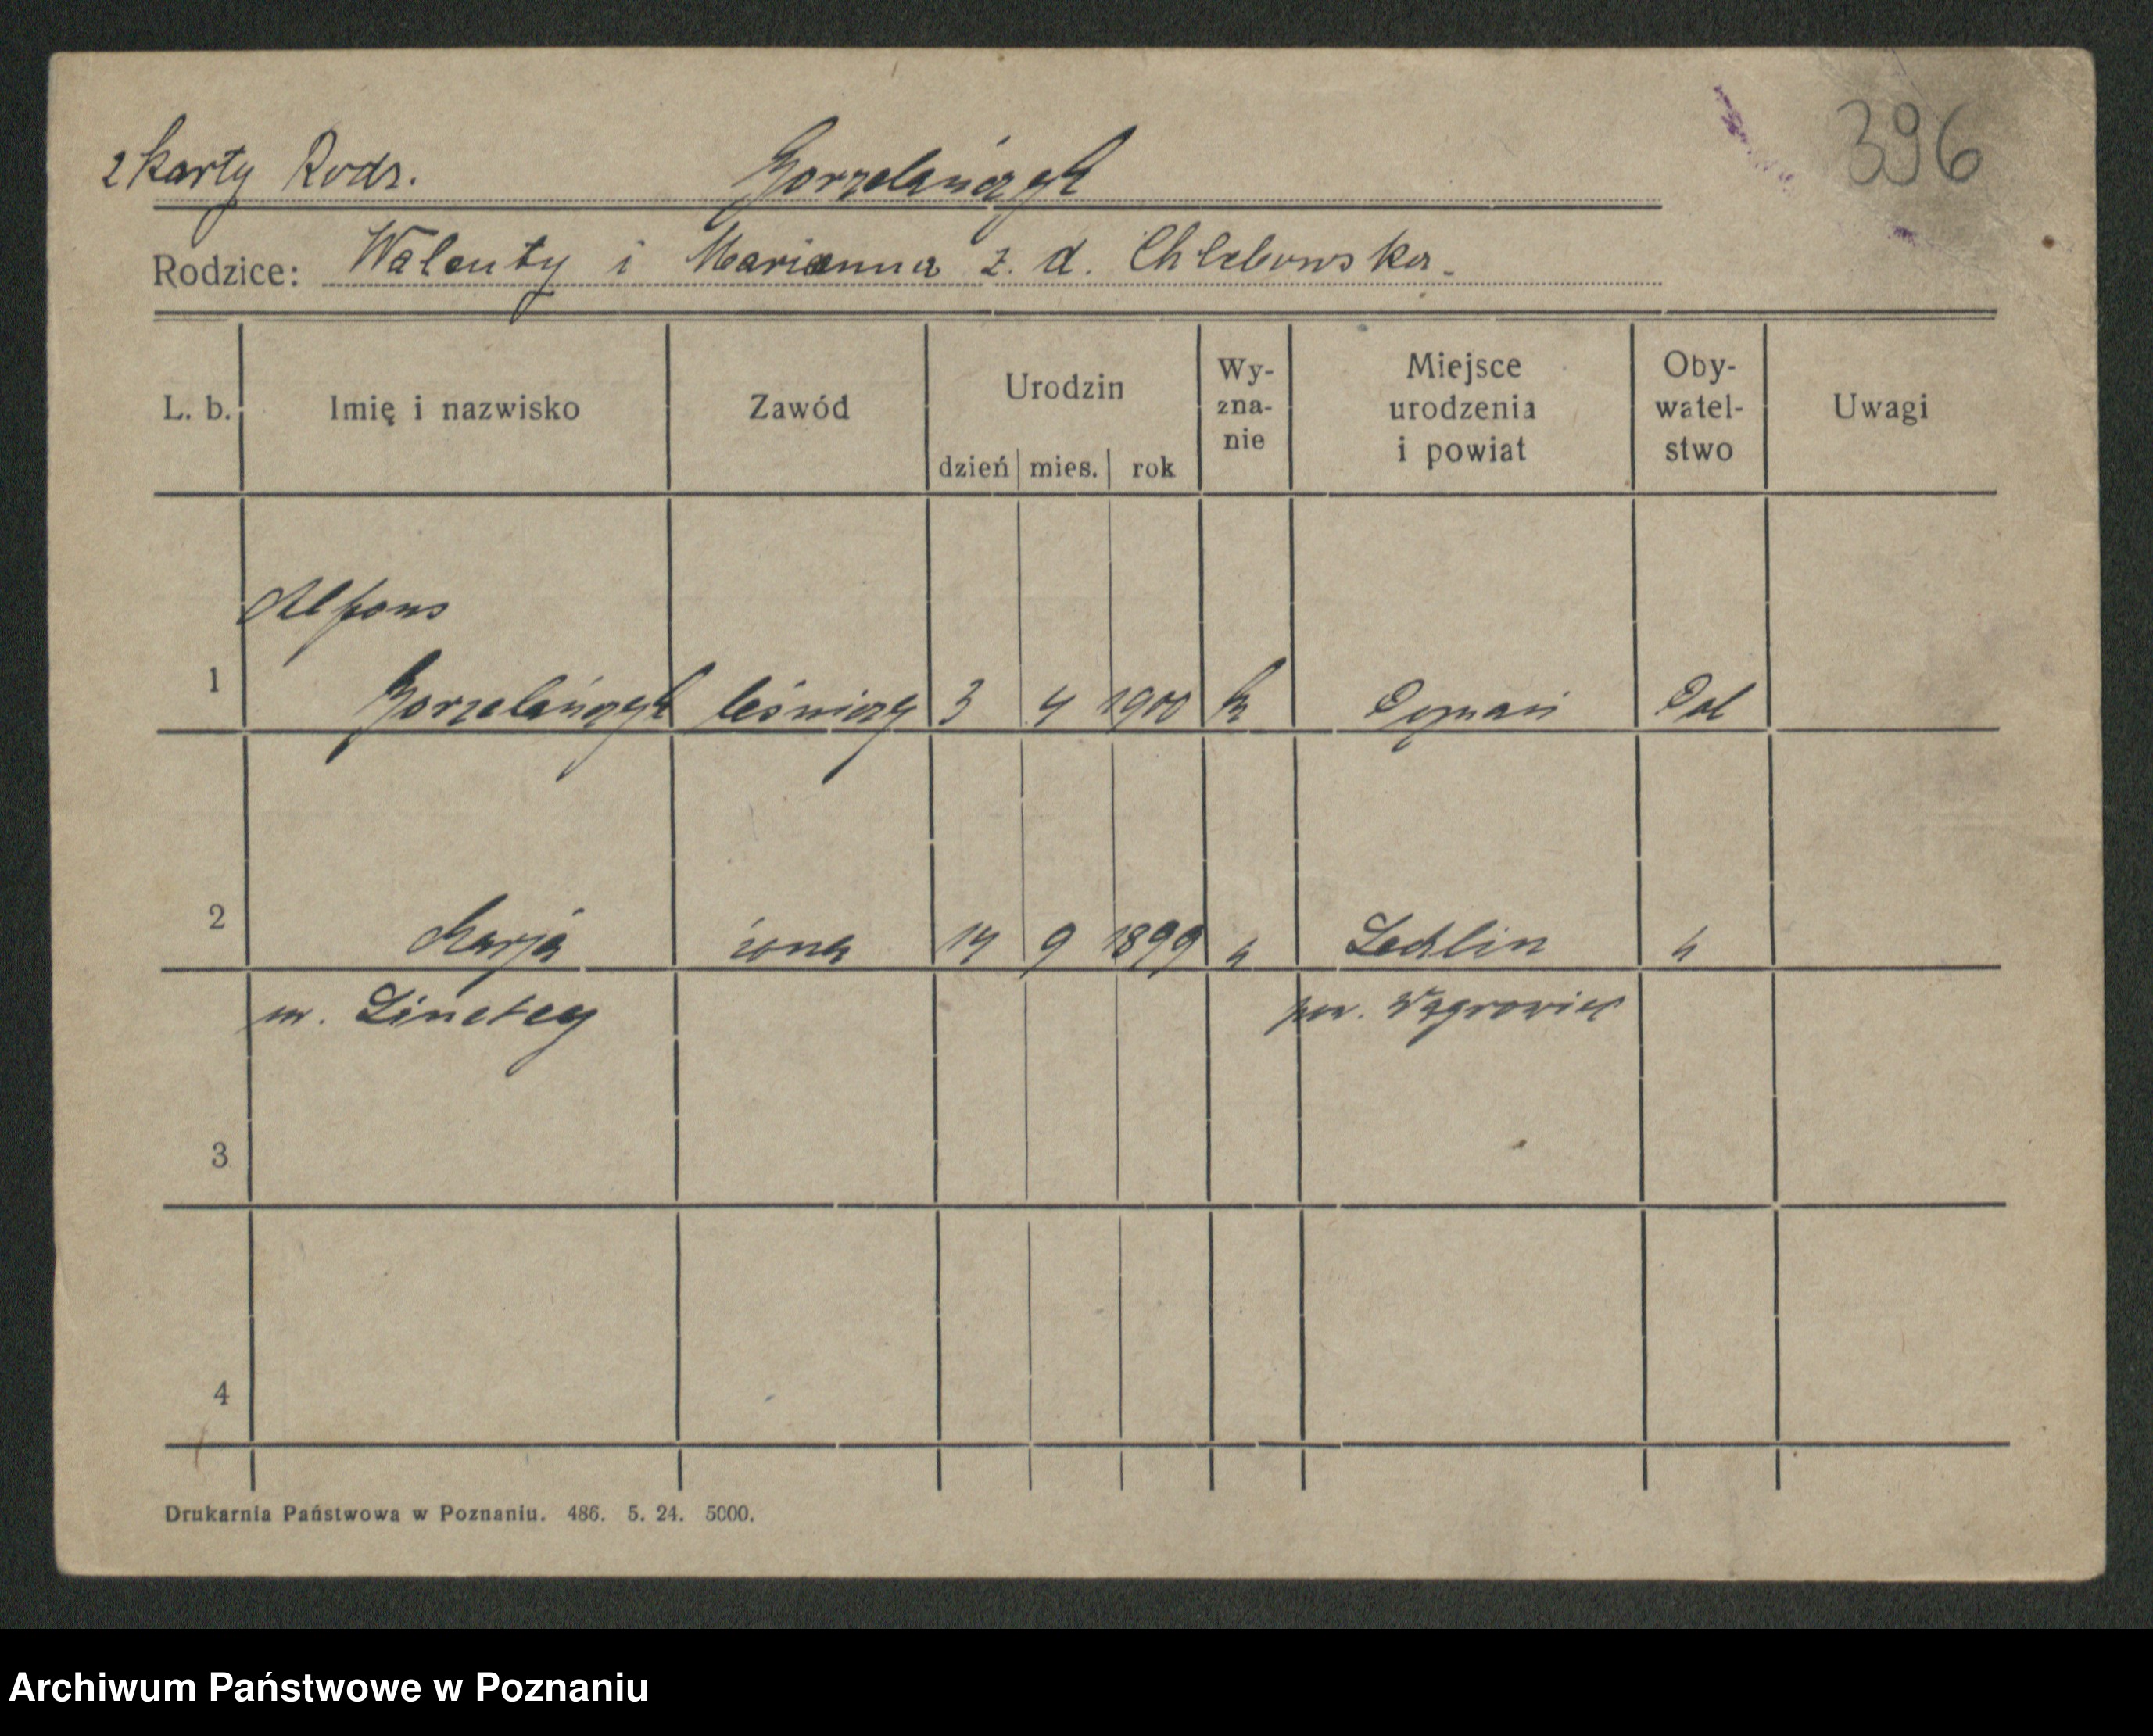 396
z karty Rodz. Gorzelańczyk
Rodzice: Walenty i Marianna z. d. Chlebowska.
L. b. Imię i nazwisko Zawód Urodzin dzień mies. rok Wy-zna-nie Miejsce urodzenia i powiat Oby-watel-stwo Uwagi
Alfons
1 Gorzelańczyk leśniczy 3 4 1900 k Poznań Pol
2 Marja żona 14 9 1899 " Lechlin "
pow. Wągrowiec
3
4
Drukarnia Państwowa w Poznaniu. 486. 5. 24. 5000.
Archiwum Państwowe w Poznaniu